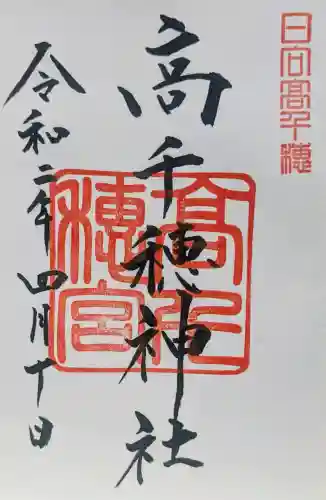 日向高千穂
高千穂神社
高千穂宮
令和二年四月十日